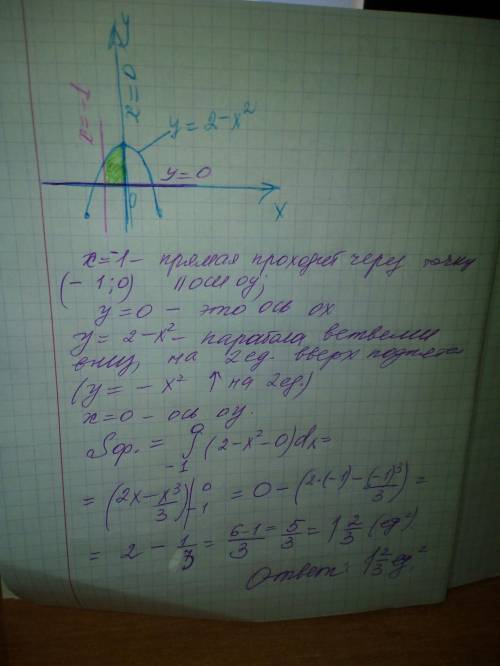 y
x=0
x=-1
y=2-x²
y=0
0
x
x=-1- прямая проходит через точку
(-1;0) || оси оу;
y=0 - это ось ох
y=2-x²- парабола ветвями
вниз, на 2ед. вверх поднята
(y=-x² ↑ на 2ед.)
x=0 - ось оу.
Sф. = ∫₋₁⁰ (2-x²-0)dx=
= (2x-x³/3)|₋₁⁰ = 0-(2·(-1)-(-1)³/3)=
= 2 - 1/3 = 6-1/3 = 5/3 = 1 2/3 (ед²)
Ответ: 1 2/3 ед.²